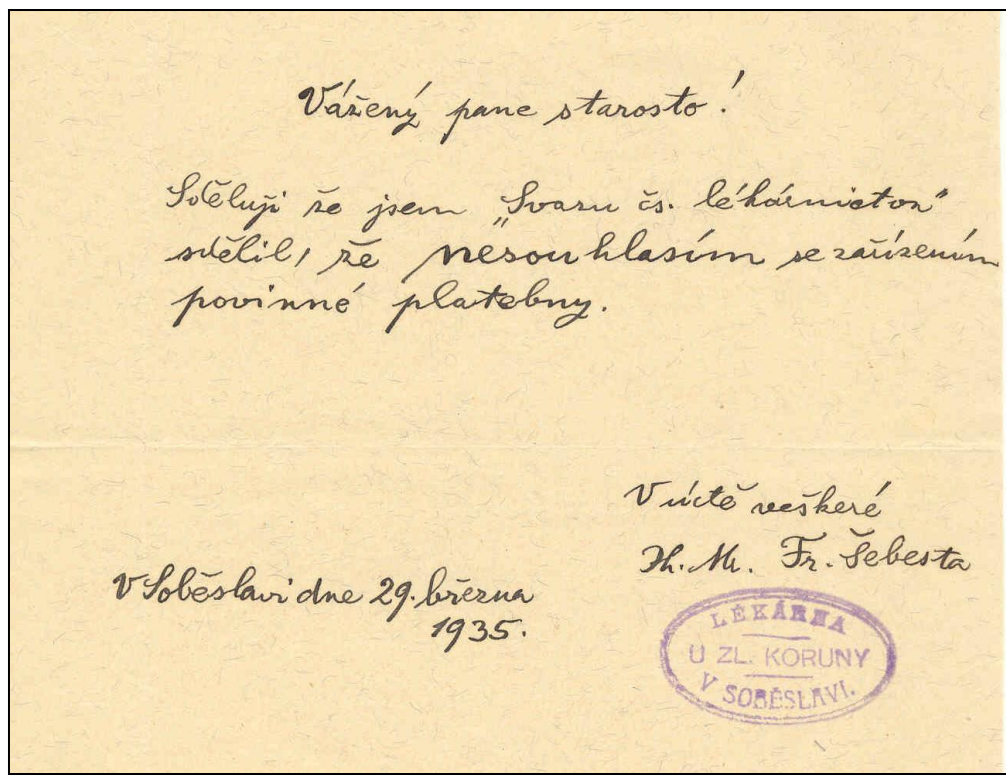 Vážený pane starosto!
Sděluji že jsem „Svazu čs. lékárnictva"
sdělil, že nesouhlasím se zařízením
povinné platebny.
V úctě veškeré
Ph. Mr. Fr. Šebesta
V Soběslavi dne 29. března
1935.
LÉKÁRNA
U ZL. KORUNY
V SOBĚSLAVI.